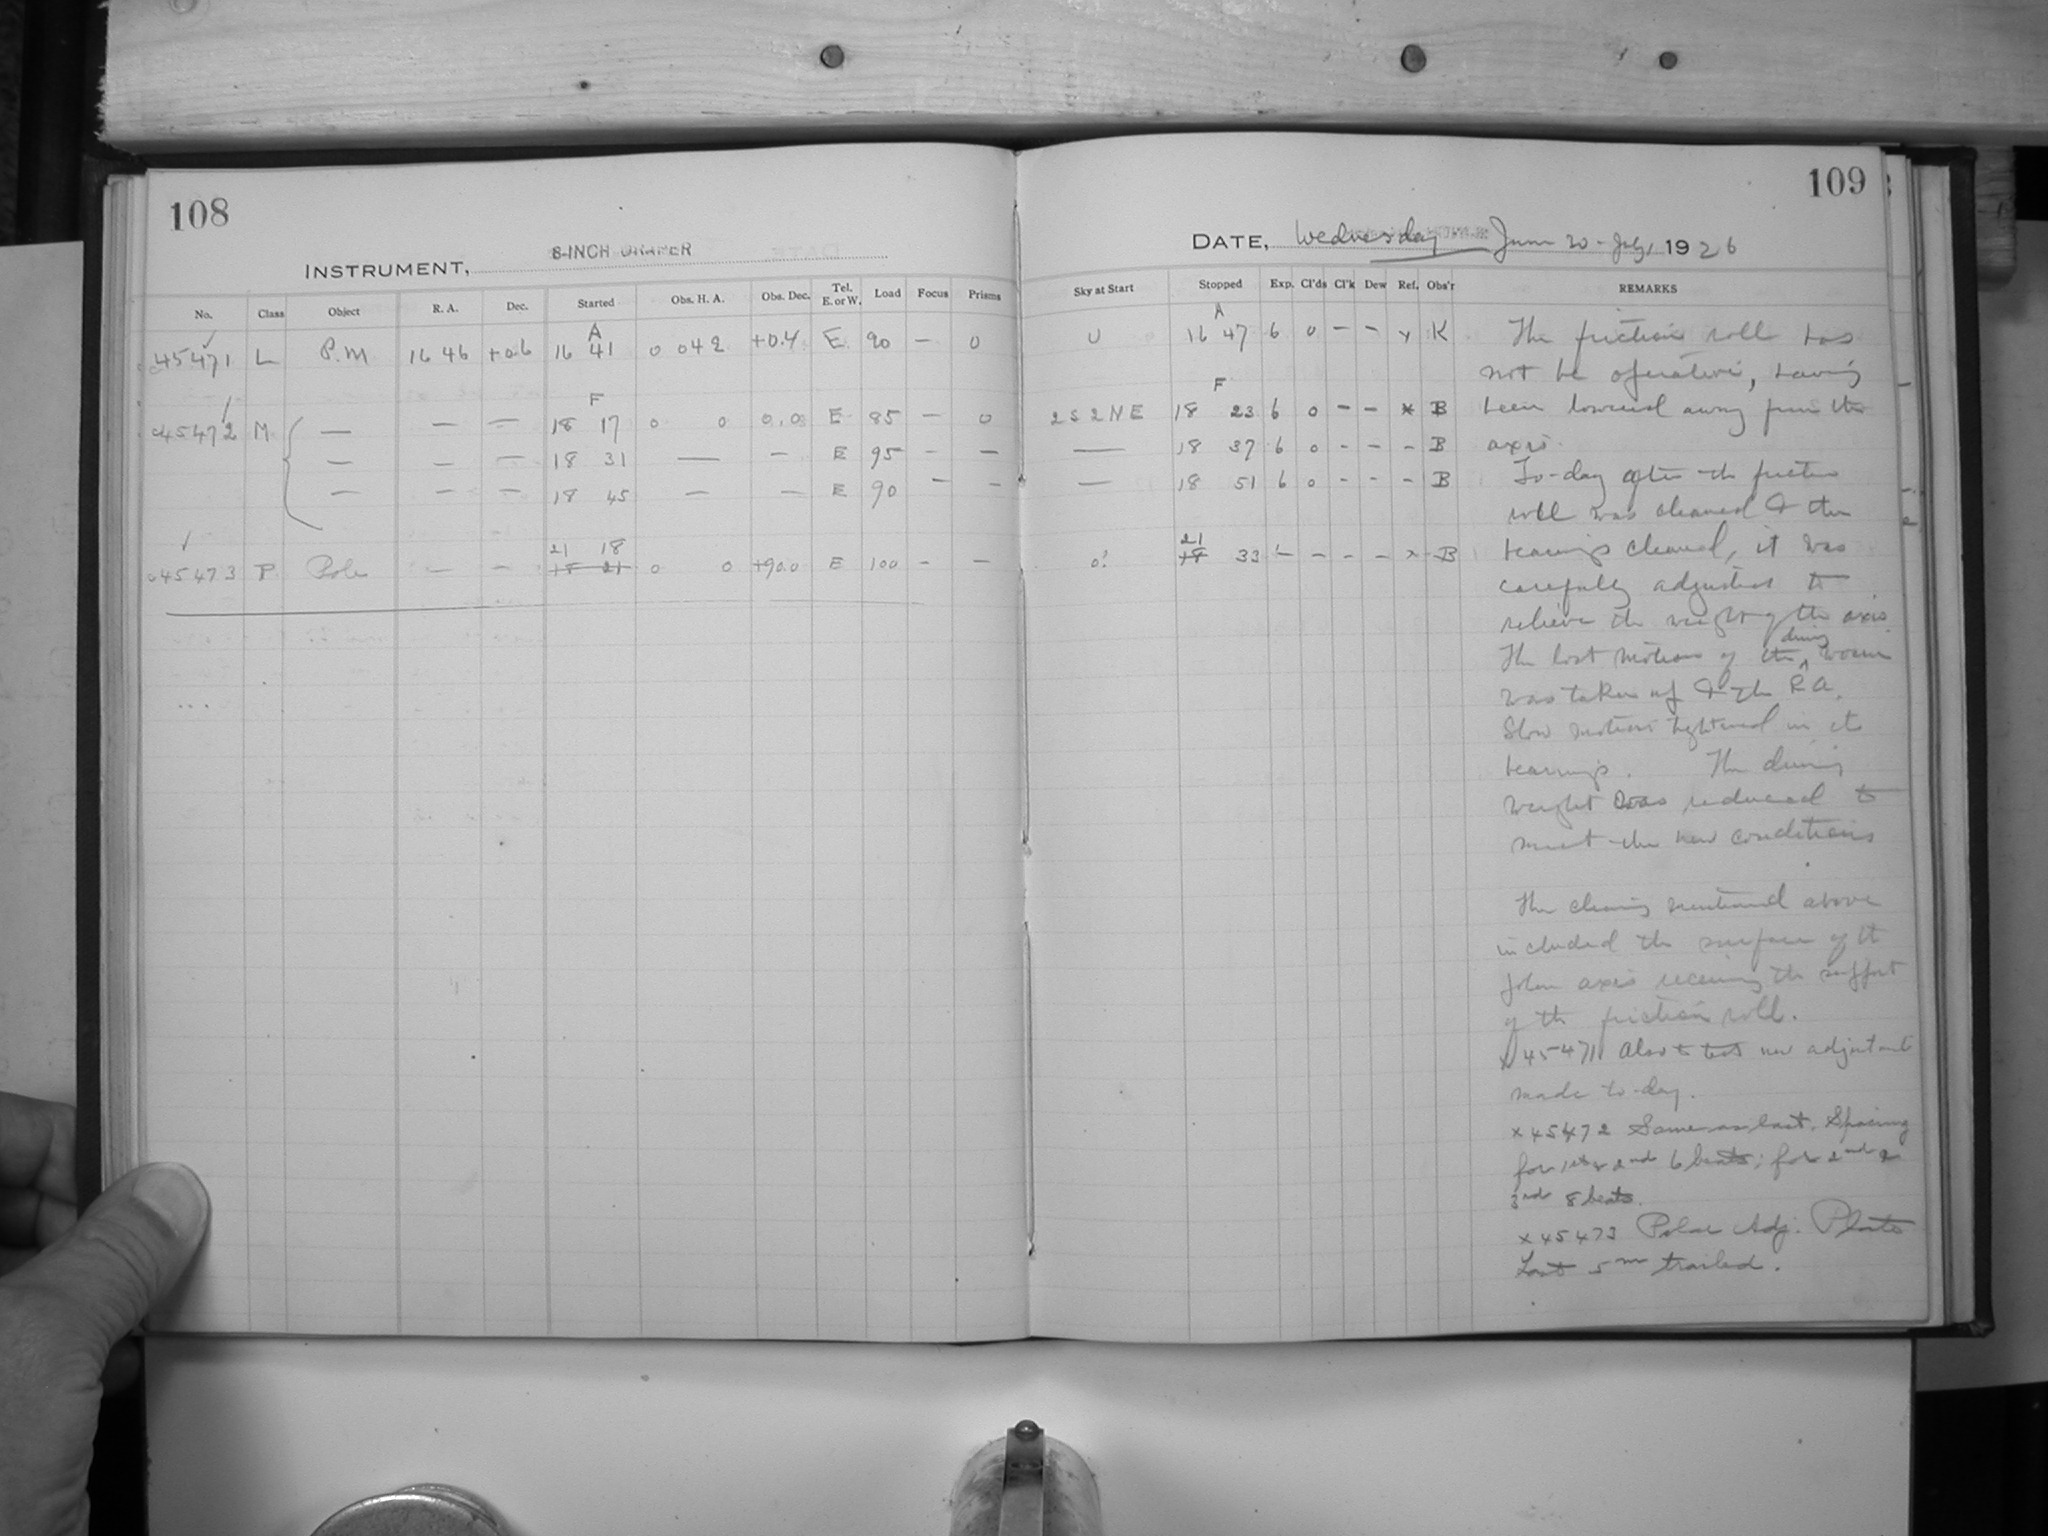 108
INSTRUMENT, 8-INCH DRAPER
No. Class Object R. A. Dec. Started Obs. H. A. Obs. Dec. Tel. E. or W. Load Focus Prisms
A
45471 L P.M 16 46 +0.6 16 41 0 042 +0.4 E 90 — 0
F
45472 M — — — 18 17 0 0 0.0 E 85 — 0
— — — 18 31 — — E 95 — —
— — — 18 45 — — E 90 — —
21 18
45473 P Pole — — 18 21 0 0 +90.0 E 100 — —
109
DATE, Wednesday June 30 - July 1 1926
Sky at Start Stopped Exp. Cl'ds Cl'k Dew Ref. Obs'r REMARKS
A
0 16 47 6 0 — — x K
F
2 S 2 N E 18 23 6 0 — — x B
— 18 37 6 0 - - - B
— 18 51 6 0 - - - B
21
0? 18 33 — — — — x B
The friction roll has
not be operative, having
been lowered away from the
axis.
To-day after the friction
roll was cleaned & the
bearings cleaned, it was
carefully adjusted to
relieve the weight of the axis
The lost motion of the driving worm
was taken up & the R A.
Slow motion tightened in its
bearings. The driving
weight was reduced to
meet the new conditions
The cleaning mentioned above
included the surface of the
polar axis receiving the support
of the friction roll.
x 45471 Also to test new adjustment
made to-day.
x 45472 Same as last. Spacing
for 1st & 2nd 6 beats; for 2nd &
3rd 8 beats.
x 45473 Polar Adj. Plate
Last 5m trailed.